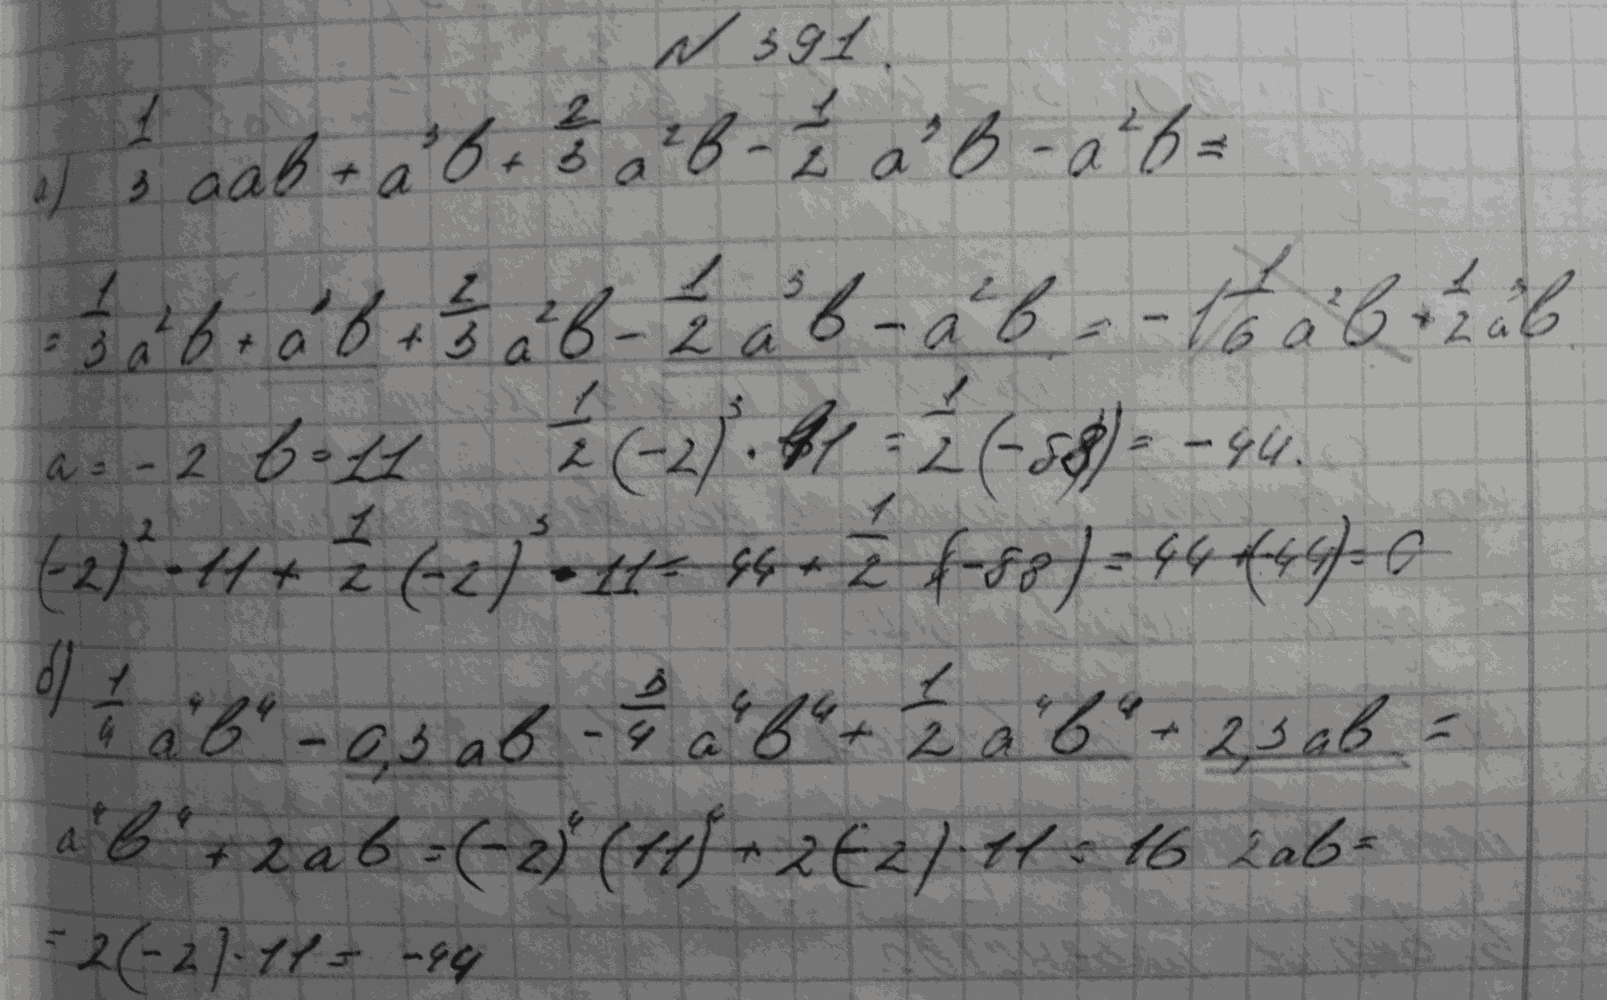 № 391.
а) 1/3 aab + a³b + 2/3 a²b - 1/2 a³b - a²b =
= 1/3 a²b + a³b + 2/3 a²b - 1/2 a³b - a²b = - 1 1/6 a²b + 1/2 a³b
a = - 2 b = 11 1/2 (-2)³ · 11 = 1/2 (-88) = - 44.
(-2)² · 11 + 1/2 (-2)³ · 11 = 44 + 1/2 (-88) = 44 + (-44) = 0
б) 1/4 a⁴b⁴ - 0,3 ab - 3/4 a⁴b⁴ + 1/2 a⁴b⁴ + 2,3 ab =
a⁴b⁴ + 2ab = (-2)⁴ (11)⁴ + 2(-2) · 11 = 16 2ab =
= 2(-2) · 11 = -44